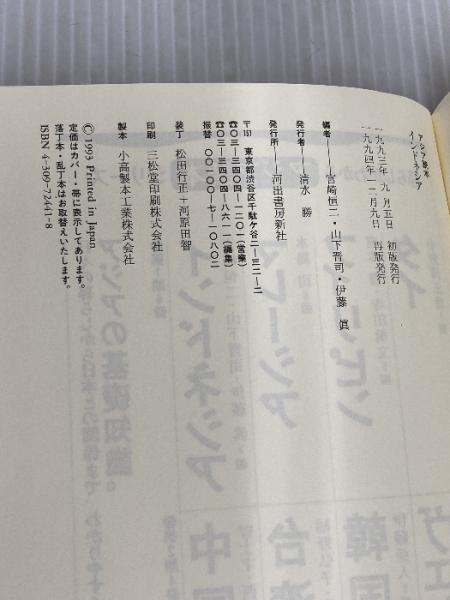 アジア読本
インドネシア
一九九三年 九月五日 初版発行
一九九四年一二月九日 再版発行
編者——宮崎恒二・山下晋司・伊藤 眞
発行者——清水 勝
発行所——河出書房新社
〒151 東京都渋谷区千駄ケ谷二—三二—二
☎〇三—三四〇四—一二〇一(営業)
☎〇三—三四〇四—八六一一(編集)
振替 〇〇一〇〇—七—一〇八〇二
装丁 松田行正+河原田智
印刷 三松堂印刷株式会社
製本 小高製本工業株式会社
Ⓒ1993 Printed in Japan
定価はカバー・帯に表示してあります。
落丁本・乱丁本はお取替えいたします。
ISBN 4-309-72441-8
タイ
フィリピン
マレーシア
インドネシア
アジアの基礎知識。
韓国
台湾
中国